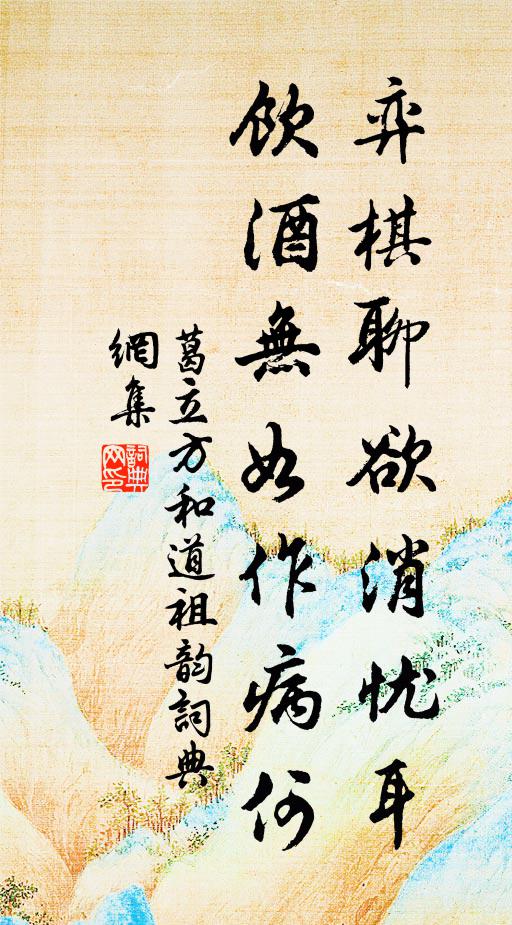 弈棋聊欲消忧耳
飲酒無如作病何
葛立方和道祖韵詞典
網集
詞典
网印